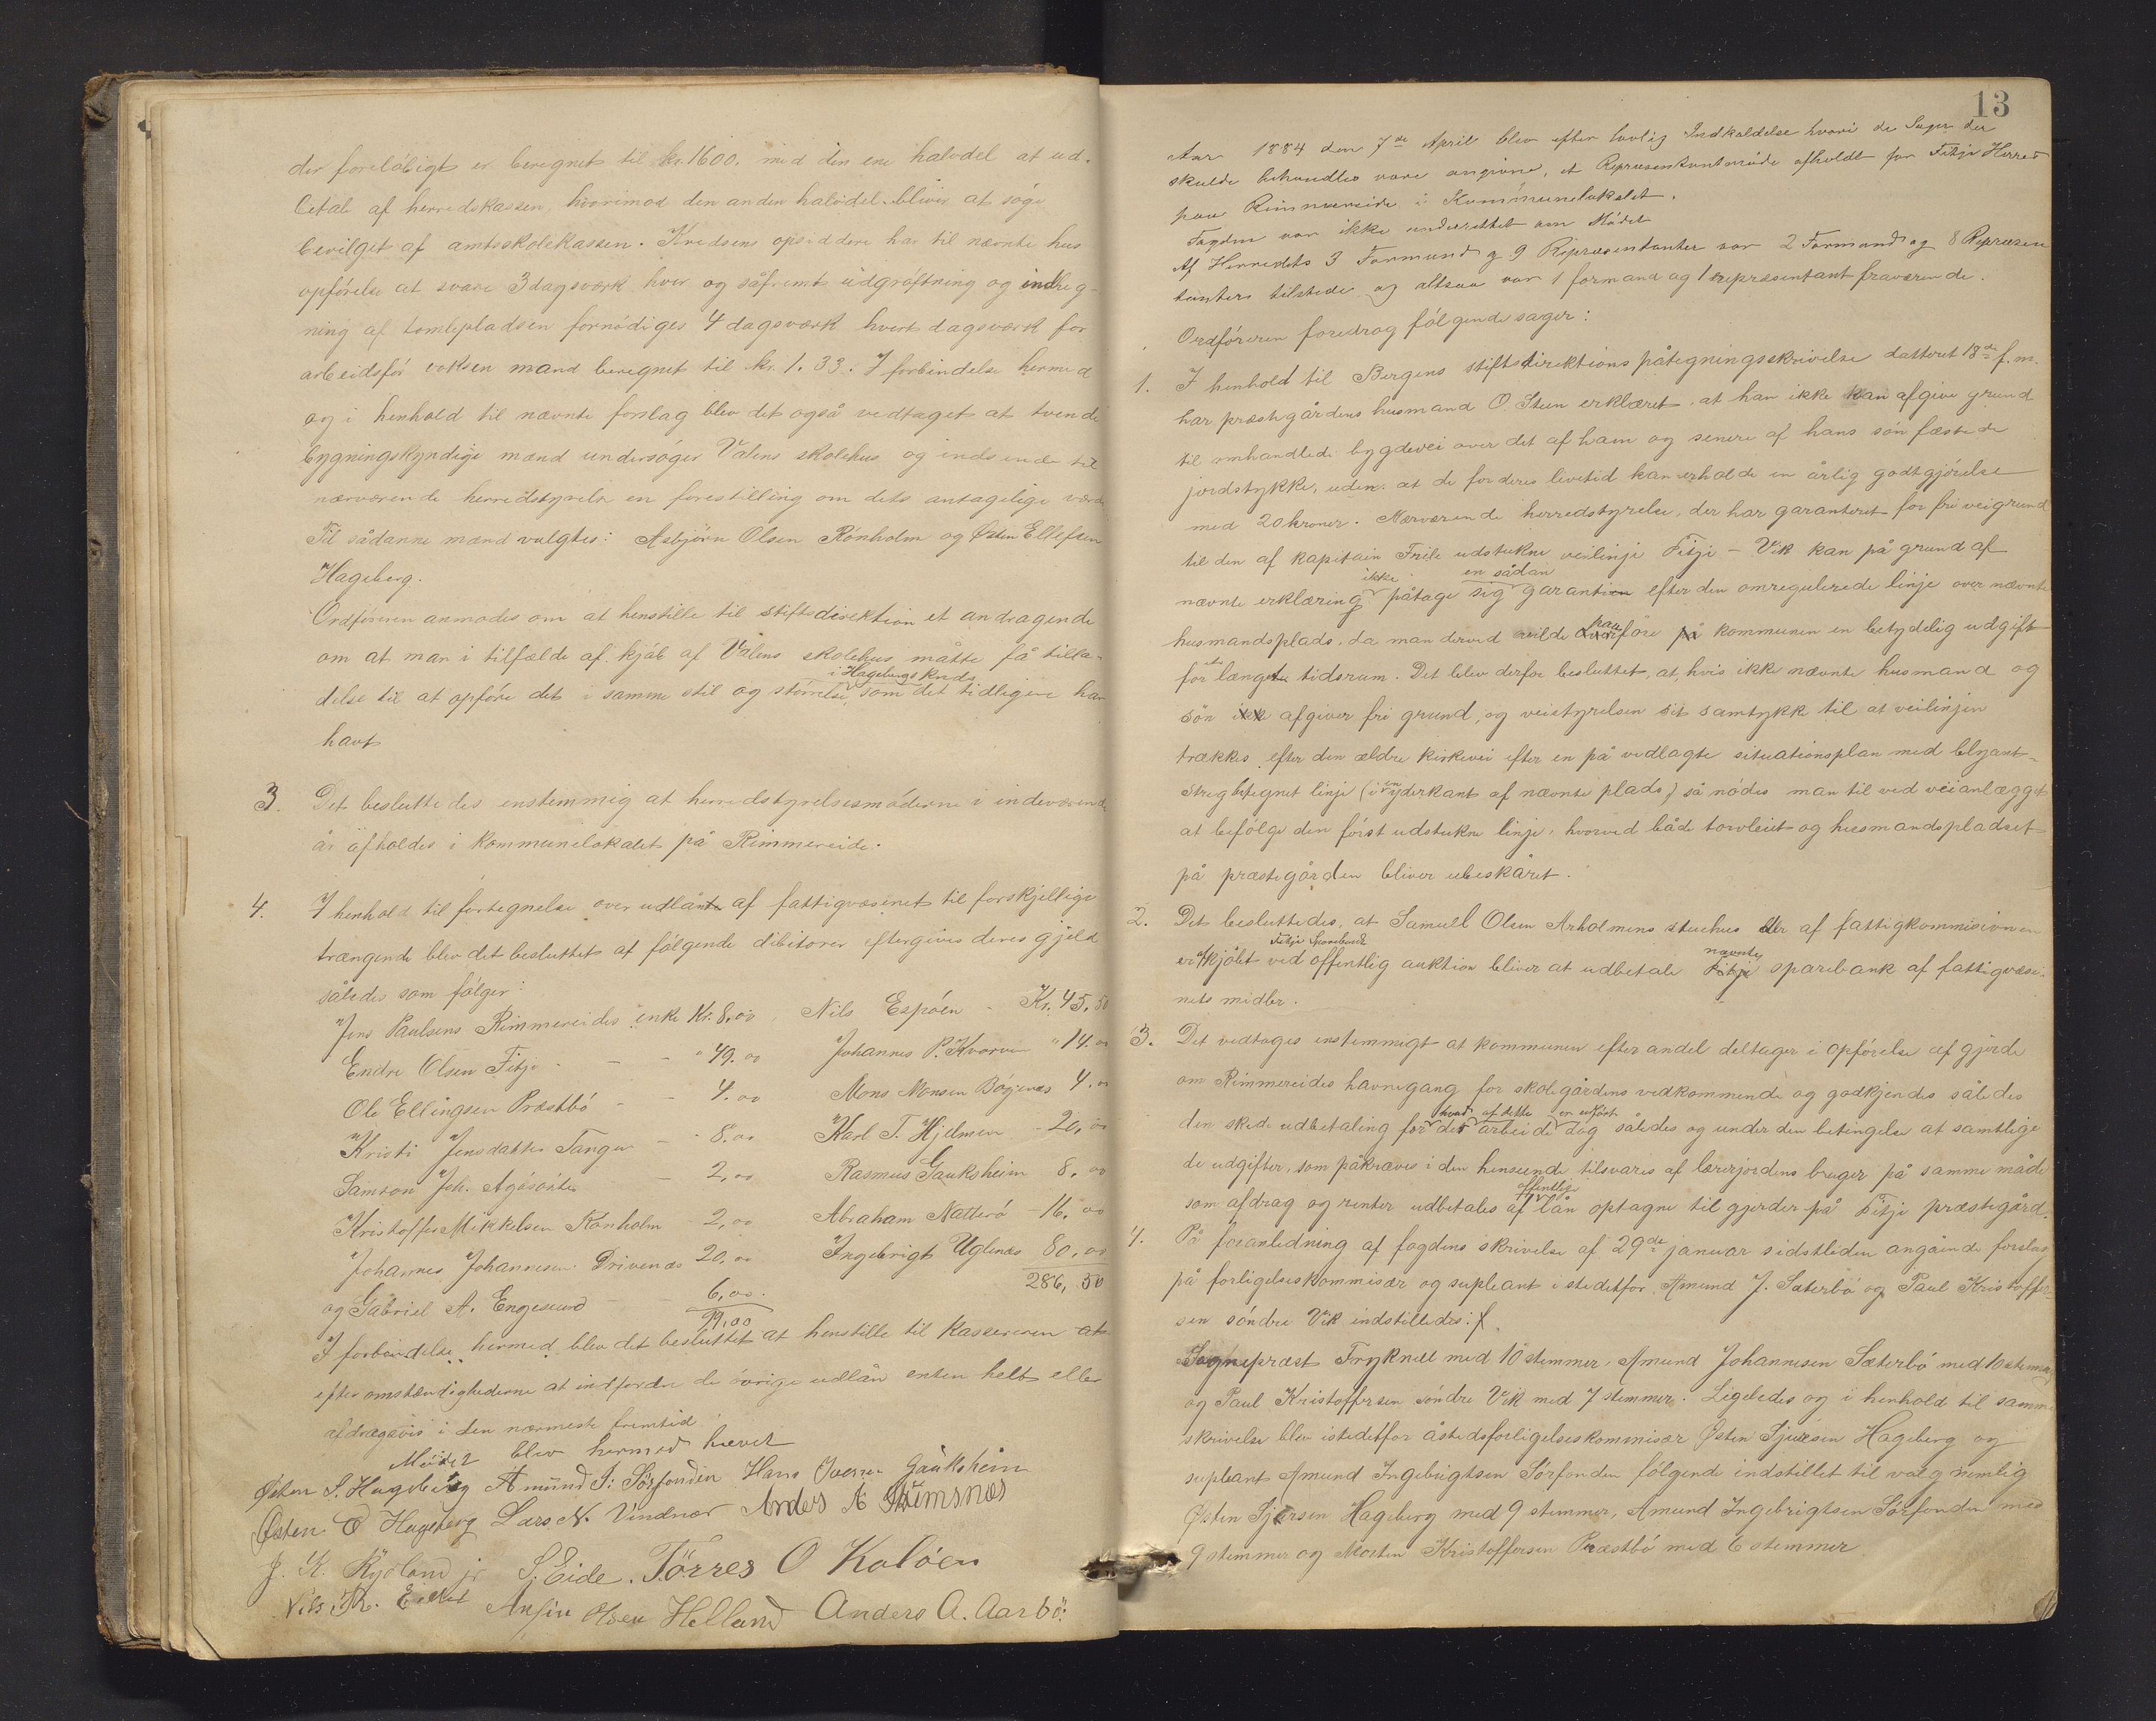 der foreløbigt er beregnet til kr. 1600. med den ene halvdel at ud-
betale af herredskassen, hvorimod den anden halvdel bliver at søge
bevilget af amtsskolekassen. Kredsens opsiddere har til nævnte hus
opførelse at svare 3 dagsværk hver og såfremt udgrøftning og indheg-
ning af tomtepladsen fornødiges 4 dagsværk hvert dagsværk for
arbeidsfør voksen mand beregnet til kr. 1.33. I forbindelse hermed
og i henhold til nævnte forslag blev det også vedtaget at tvende
bygningskyndige mænd undersøger Vålens skolehus og indsende til
nærværende herredsstyrelse en forestilling om dets antagelige værdi
Til sådanne mænd valgtes: Asbjørn Olsen Rønholm og Østen Ellefsen
Hageberg.
Ordføreren anmodes om at henstille til stiftsdirektion et andragende
om at man i tilfælde af kjøb af Vålens skolehus måtte få tilla-
i Hagebergs kreds
delse til at opføre det i samme stil og størrelse, som det tidligere har
havt
3. Det besluttedes enstemmig at herredsstyrelsesmøderne i indeværende
år afholdes i kommunelokalet på Rimmereide.
4. I henhold til fortegnelse over udlånte af fattigvæsenet til forskjellige
trængende blev det besluttet at følgende debitorer eftergives deres gjeld
således som følger:
Jens Paulsens Rimmereides enke Kr. 8,00 Nils Espøen - Kr. 45,50
Endre Olsen Fitje - - " 49.00 Johannes P. Kvarven " 14.00
Ole Ellingsen Præstbø - - 4.00 Mons Monsen Bøgenæs 4.00
Kristi Jensdatter Tangen - - 8.00 Karl T. Hjelmen - 20,00
Samson Joh. Agdesteen - 2,00 Rasmus Gauksheim 8,00
Kristoffer Mikkelsen Rønholm - 2,00 Abraham Natterø - 16,00
Johannes Johannesen Drivenæs 20,00 Ingebrigt Uglenæs 80,00
og Gabriel A. Engesund - - 6,00. 286,50
99,00
I forbindelse hermed blev det besluttet at henstille til kassereren at
efter omstændighederne at indfordre de øvrige udlån enten helt eller
afdragsvis i den nærmeste fremtid
Mødet blev hermed hævet
Østen S. Hageberg Amund I. Sørfonden Hans Iversen Gauksheim
Østen E Hageberg Lars N. Vindnæs Anders A Strømsnæs
J. K. Rydland jr S. Eide. Tørres O Kaløen
Nils Th. Eidet Ansjin Olsen Helland Anders A. Aarbø.
13
Aar 1884 den 7de April blev efter lovlig Indkaldelse hvori de Sager der
skulde behandles vare angivne, et Repræsentantmøde afholdt for Fitje Herred
paa Rimmereide i Kommunelokalet.
Fogden var ikke underrettet om Mødet
Af Herredets 3 Formænd og 9 Repræsentanter var 2 Formænd og 8 Repræsen
tanter tilstede og altsaa var 1 formand og 1 repræsentant fraværende.
Ordføreren foredrog følgende sager:
1. I henhold til Bergens stiftsdirektions påtegningsskrivelse datteret 18de f.m.
har præstegårdens husmand O. Steen erklæret, at han ikke kan afgive grund
til omhandlede bygdevei over det af ham og senere af hans søn fæstede
jordstykke, uden at de for deres levetid kan erholde en årlig godtgjørelse
med 20 kroner. Nærværende herredsstyrelse, der har garanteret for fri veigrund
til den af kapitain Friele udstukne veilinje Fitje - Vik kan på grund af
ikke en sådan
nævnte erklæring påtage sig garantien efter den omregulerede linje over nævnte
paa
husmandsplads, da man derved vilde føre på kommunen en betydelig udgift
for længere tidsrum. Det blev derfor besluttet, at, hvis ikke nævnte husmand og
søn ikke afgiver fri grund, og veistyrelsen sit samtykke til at veilinjen
trækkes efter den ældre kirkevei efter en på vedlagte situationsplan med blyant-
streg betegnet linje (i en yderkant af nævnte plads) så nødes man til ved veianlægget
at befølge den først udstukne linje, hvorved både torvleiet og husmandspladset
på præstegården bliver ubeskåret.
2. Det besluttedes, at Samuel Olsen Arholmens stuehus der af fattigkommisionen
Fitje Sparebank nævnte
er kjøbt ved offentlig auktion bliver at udbetale Fitje sparebank af fattigvæse-
nets midler.
3. Det vedtoges enstemmigt at kommunen efter andel deltager i opførelse af gjerde
om Rimmereides havnegang for skolegårdens vedkommende og godkjendes således
hvad af dette er udført
den skede udbetaling for det arbeide dog således og under den betingelse at samtlige
de udgifter, som påkræves i den henseende tilsvares af lærerjordens bruger på samme måde
offentlige
som afdrag og renter udbetales af lån optagne til gjerder på Fitje præstegård.
4. På foranledning af fogdens skrivelse af 29de januar sidstleden angående forslag
på forligelseskommisær og supleant istedetfor Amund J. Sæterbø og Paul Kristoffer-
sen søndre Vik indstilledes:
Sogneprest Fryknell med 10 stemmer, Amund Johannesen Sæterbø med 10 stemmer
og Paul Kristoffersen søndre Vik med 7 stemmer. Ligeledes og i henhold til samme
skrivelse blev istedetfor åstedsforligelseskommisær Østen Sjursen Hageberg og
supleant Amund Ingebrigtsen Sørfonden følgende indstillet til valg nemlig
Østen Sjursen Hageberg med 9 stemmer, Amund Ingebrigtsen Sørfonden med
9 stemmer og Morten Kristoffersen Præstbø med 6 stemmer